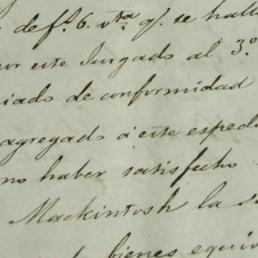 de f.s 6. vta q.e se hall
este Jusgado al 3.o
iado de conformidad
agregado a este espedi
no haber satisfecho
Mackintosh la s
bienes equiv